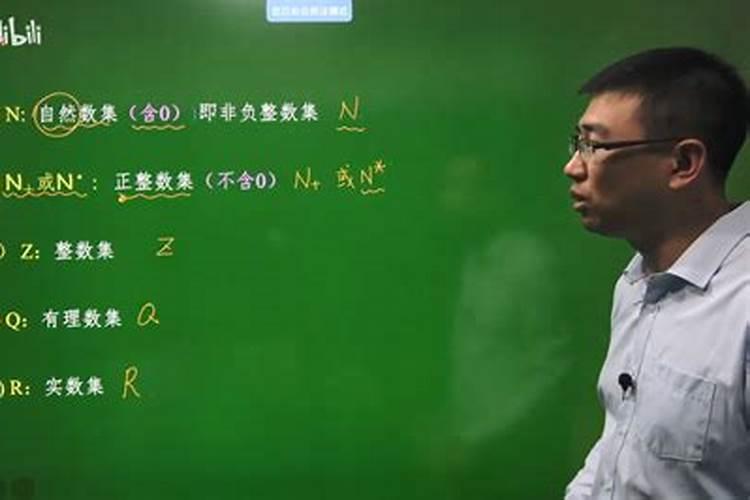 libili
N: 自然数集（含0）:即非负整数集 N
N₊或N*: 正整数集（不含0） N₊ 或N*
) Z: 整数集 Z
Q: 有理数集 Q
) R: 实数集 R